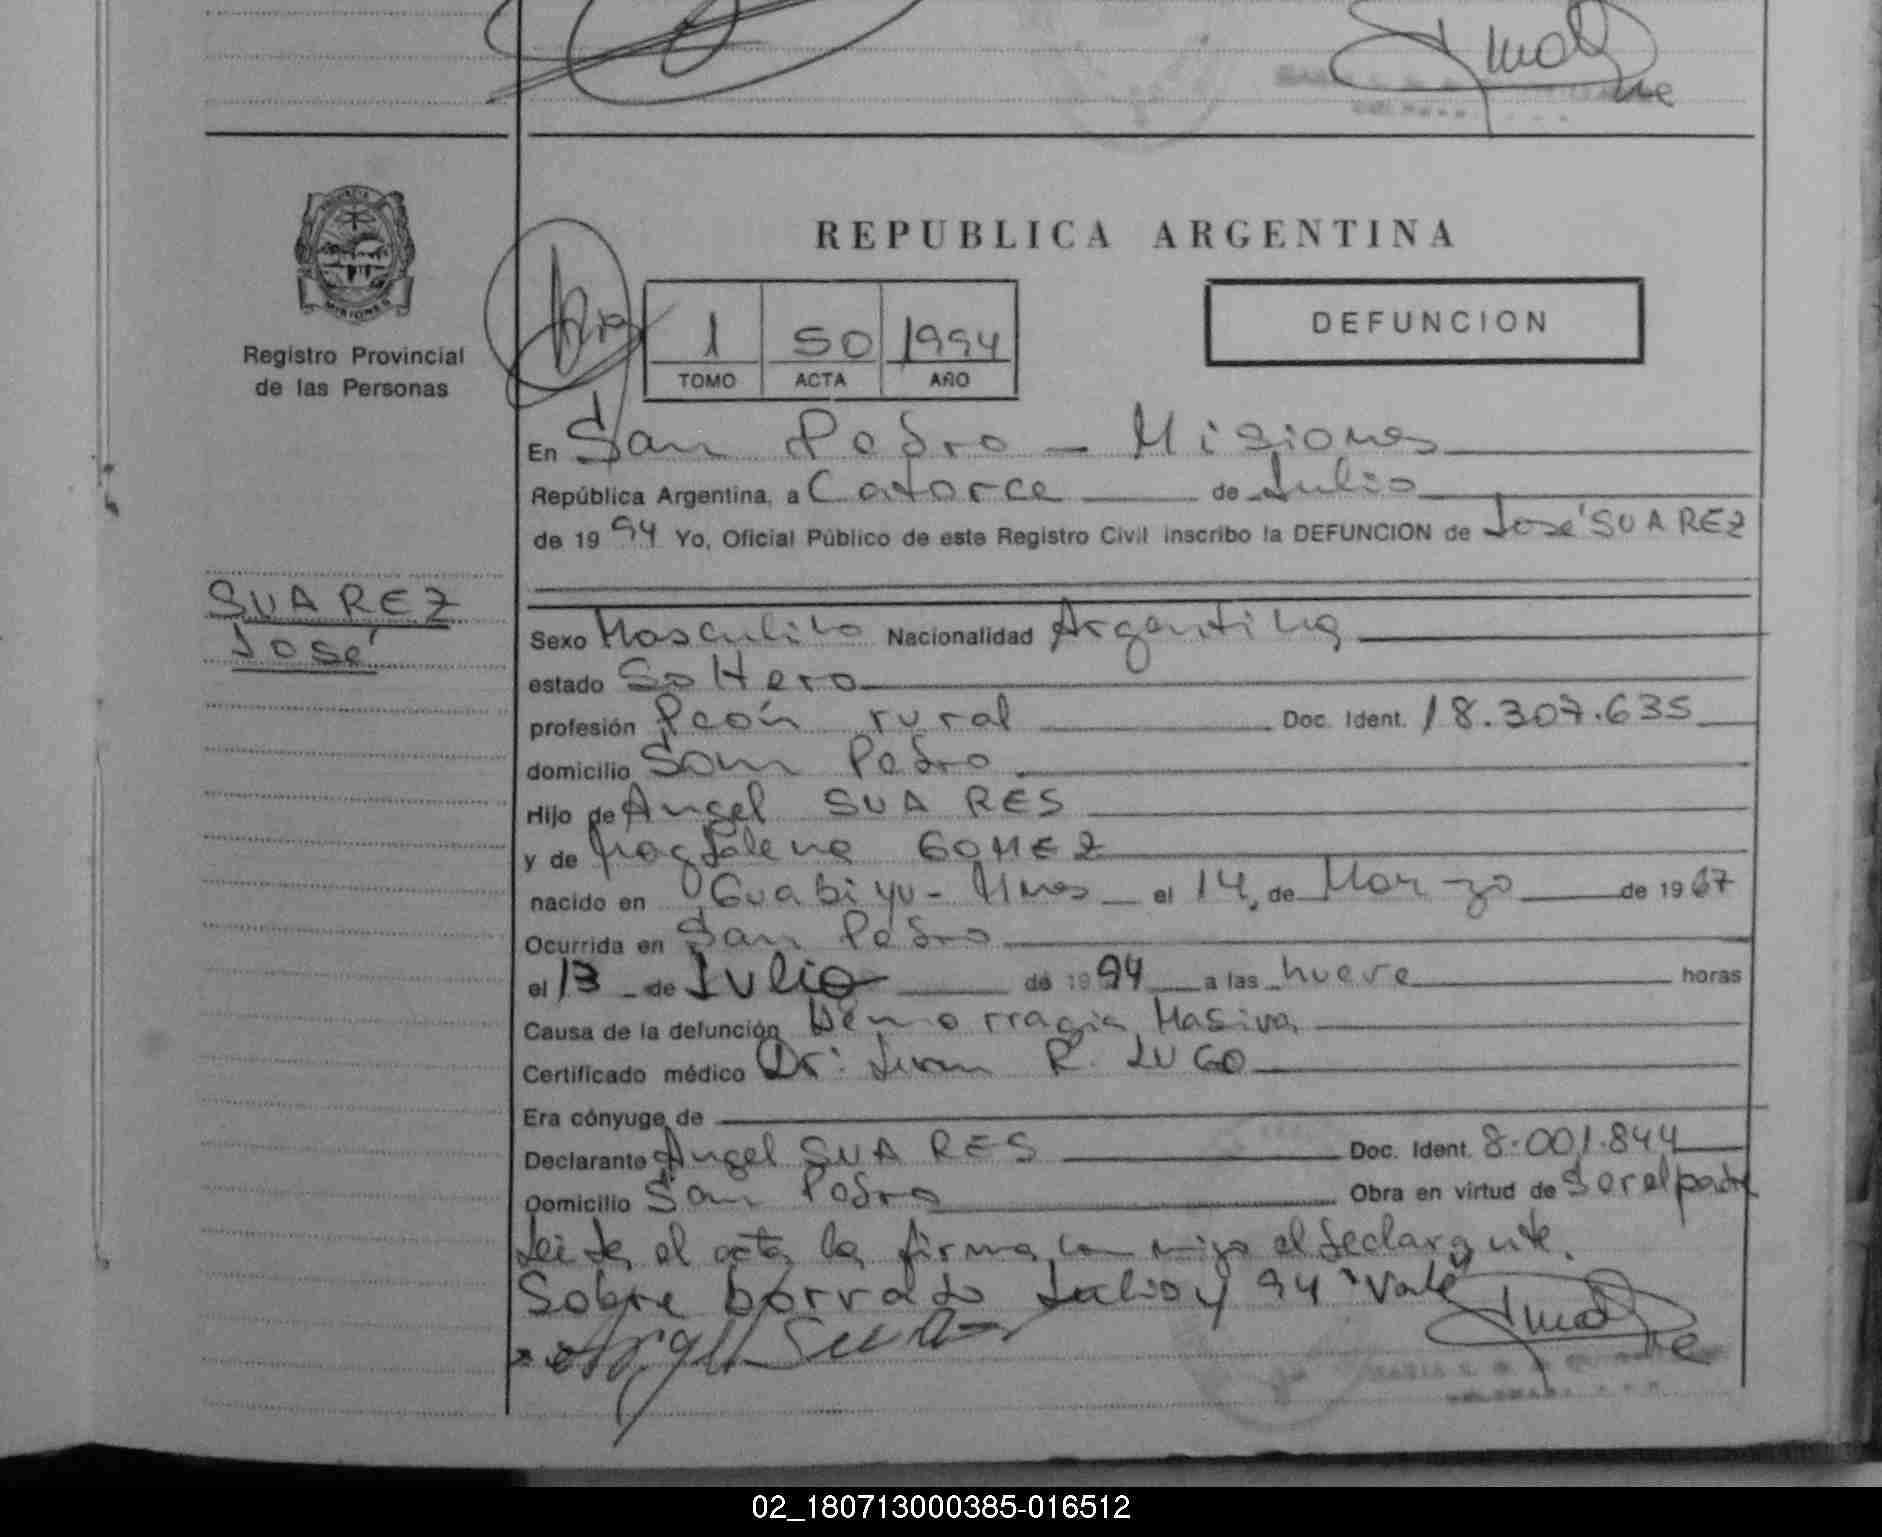 REPUBLICA ARGENTINA
Registro Provincial
de las Personas
1 50 1994
TOMO ACTA AÑO
DEFUNCION
En San Pedro - Misiones
República Argentina, a Catorce de Julio
de 1994 Yo, Oficial Público de este Registro Civil inscribo la DEFUNCION de José SUAREZ
SUAREZ
José
Sexo Masculino Nacionalidad Argentina
estado Soltero
profesión Peón rural Doc. Ident. 18.307.635
domicilio San Pedro
Hijo de Angel SUARES
y de Magdalena GOMEZ
nacido en Guabiyu - Mnes el 14 de Marzo de 1967
Ocurrida en San Pedro
el 13 de Julio de 1994 a las nueve horas
Causa de la defunción Hemorragia Masiva
Certificado médico Dr: Juan R. LUGO
Era cónyuge de
Declarante Angel SUARES Doc. Ident. 8.001.844
Domicilio San Pedro Obra en virtud de Ser el padre
Leida el acta la firma con migo el declarante.
Sobre borrado Julio y 94 "Vale
02_180713000385-016512